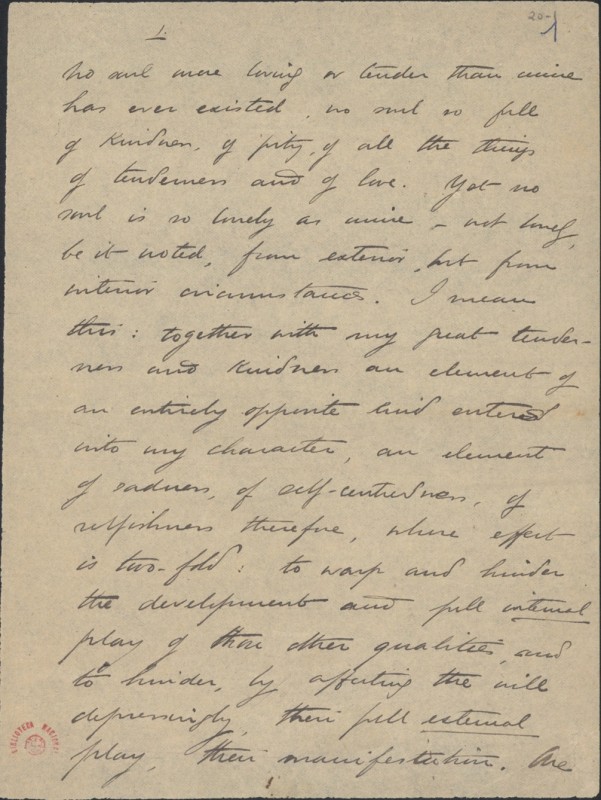 20-1
1.
No soul more loving or tender than mine
has ever existed, no soul so full
of kindness, of pity, of all the things
of tenderness and of love. Yet no
soul is so lonely as mine – not lonely,
be it noted, from exterior, but from
interior circumstances. I mean
this: together with my great tender-
ness and kindness an element of
an entirely opposite kind entered
into my character, an element
of sadness, of self-centredness, of
selfishness therefore, whose effect
is two-fold: to warp and hinder
the development and full internal
play of those other qualities, and
to hinder, by affecting the will
depressingly, their full external
play, their manifestation. One
BIBLIOTECA NACIONAL